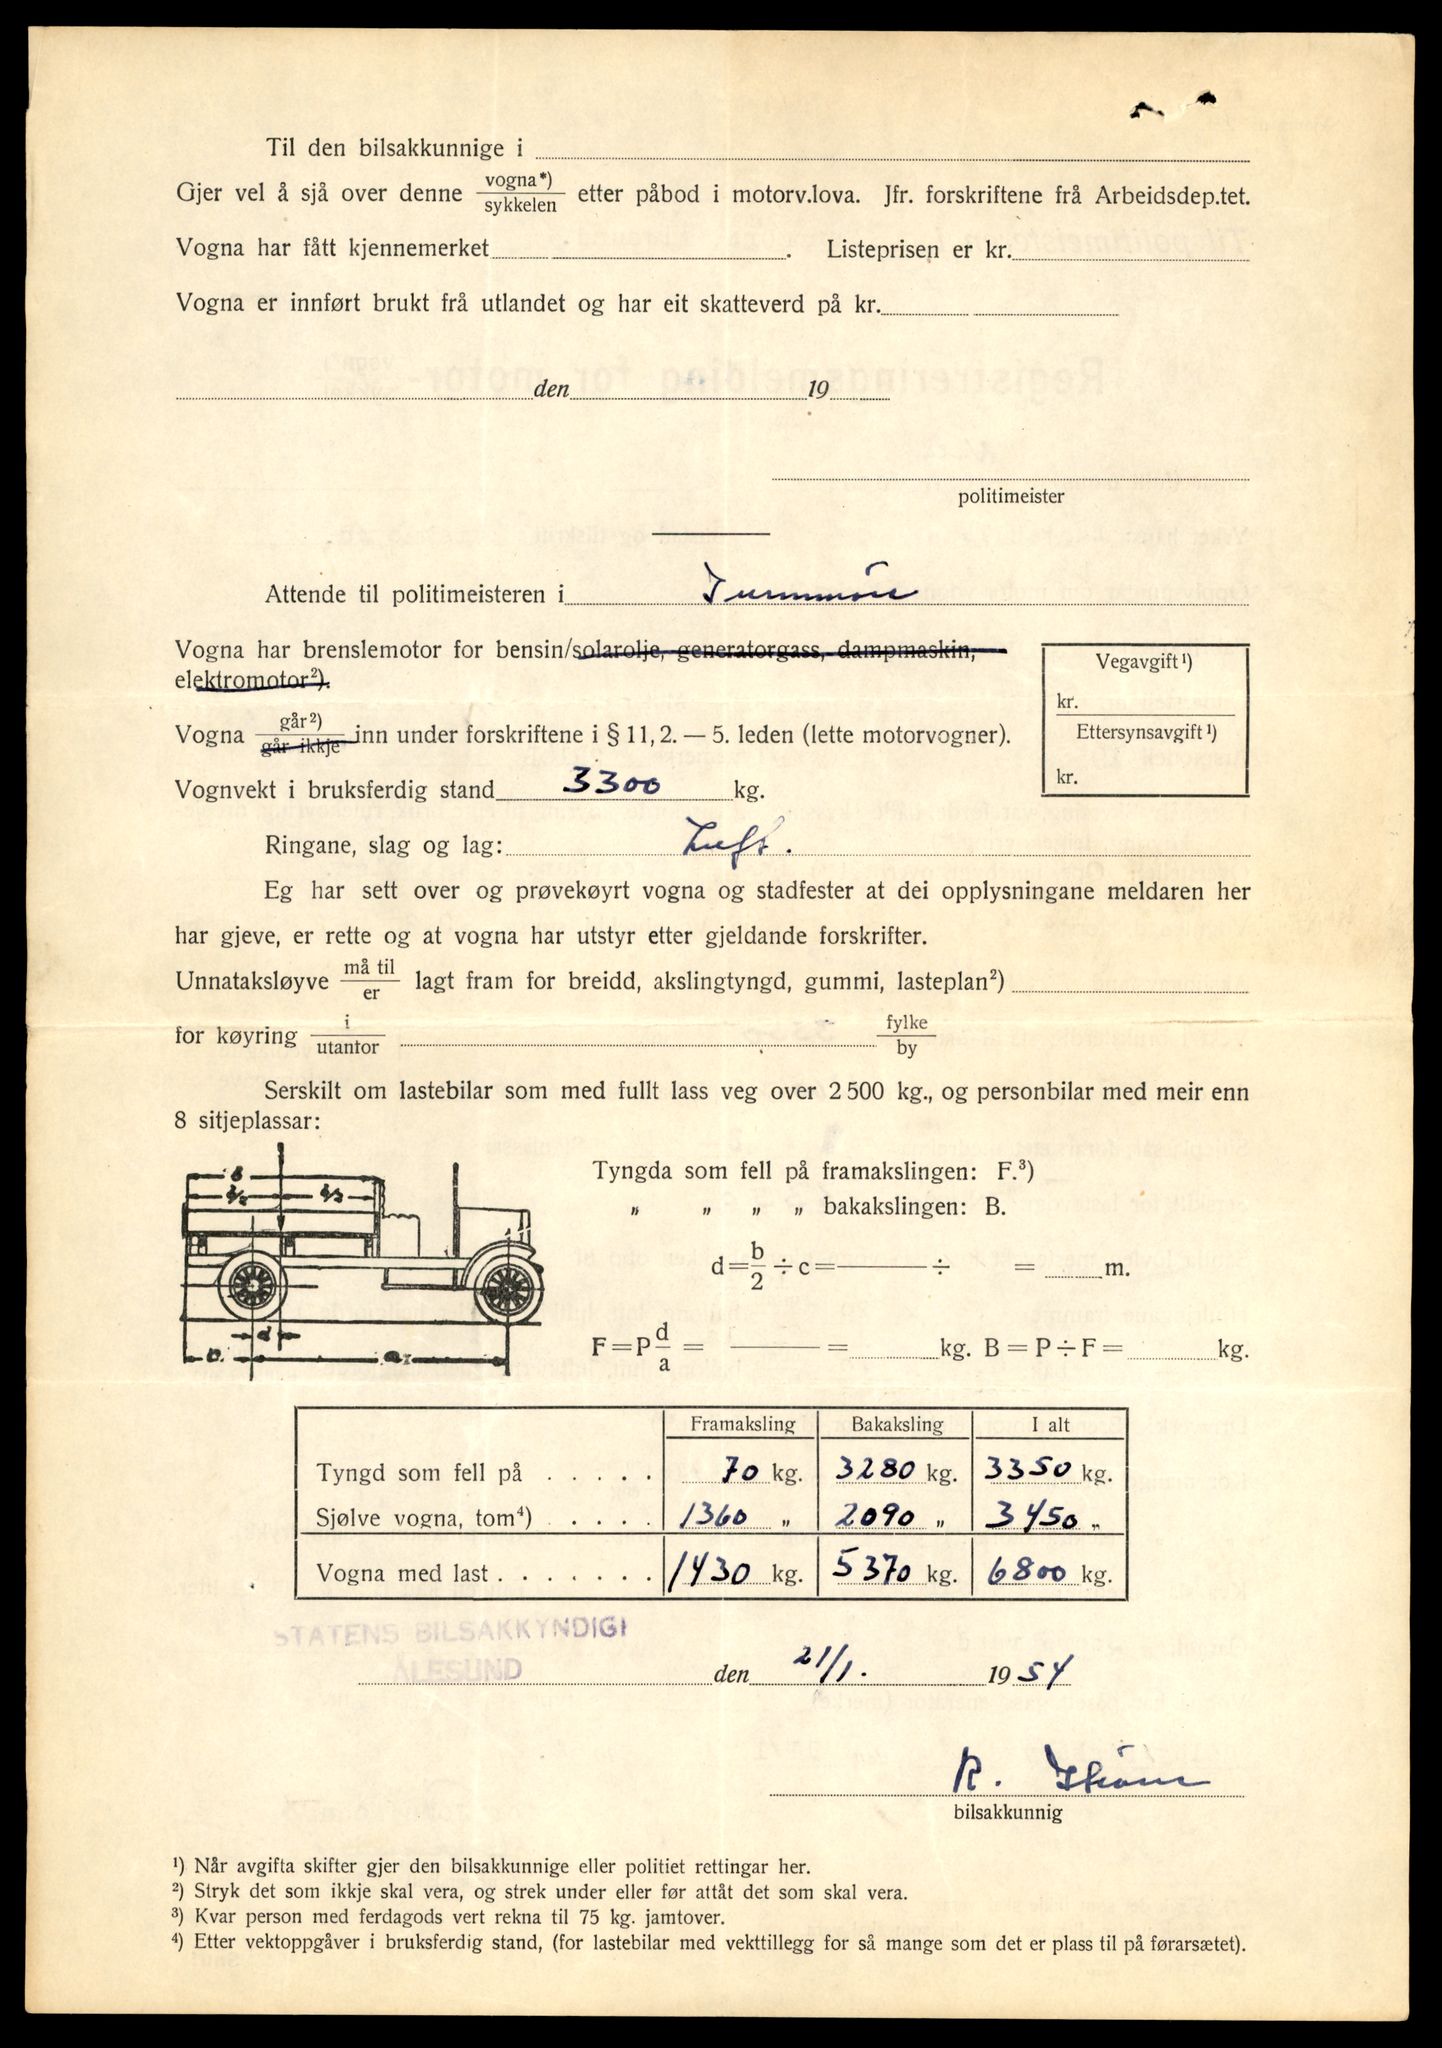 Til den bilsakkunnige i
Gjer vel å sjå over denne vogna*) / sykkelen etter påbod i motorv.lova. Jfr. forskriftene frå Arbeidsdep.tet.
Vogna har fått kjennemerket . Listeprisen er kr.
Vogna er innført brukt frå utlandet og har eit skatteverd på kr.
den 19
politimeister
Attende til politimeisteren i Sunnmøre
Vogna har brenslemotor for bensin/solarolje, generatorgass, dampmaskin,
elektromotor²).
Vegavgift¹)
kr.
Ettersynsavgift¹)
kr.
Vogna går²) / går ikkje inn under forskriftene i § 11, 2. — 5. leden (lette motorvogner).
Vognvekt i bruksferdig stand 3300 kg.
Ringane, slag og lag: Luft.
Eg har sett over og prøvekøyrt vogna og stadfester at dei opplysningane meldaren her
har gjeve, er rette og at vogna har utstyr etter gjeldande forskrifter.
Unnataksløyve må til / er lagt fram for breidd, akslingtyngd, gummi, lasteplan²)
for køyring i / utantor fylke / by
Serskilt om lastebilar som med fullt lass veg over 2 500 kg., og personbilar med meir enn
8 sitjeplassar:
Tyngda som fell på framakslingen: F.³)
„ „ „ „ bakakslingen: B.
d = b/2 ÷ c = ——— ÷ = m.
F = P d/a = ——— = kg. B = P ÷ F = kg.
Framaksling Bakaksling I alt
Tyngd som fell på . . . . . 70 kg. 3280 kg. 3350 kg.
Sjølve vogna, tom⁴) . . . . . 1360 „ 2090 „ 3450 „
Vogna med last . . . . . . . 1430 kg. 5370 kg. 6800 kg.
STATENS BILSAKKYNDIGI
ÅLESUND
den 21/1. 1954
R.
bilsakkunnig
¹) Når avgifta skifter gjer den bilsakkunnige eller politiet rettingar her.
²) Stryk det som ikkje skal vera, og strek under eller før attåt det som skal vera.
³) Kvar person med ferdagods vert rekna til 75 kg. jamtover.
⁴) Etter vektoppgåver i bruksferdig stand, (for lastebilar med vekttillegg for så mange som det er plass til på førarsætet).